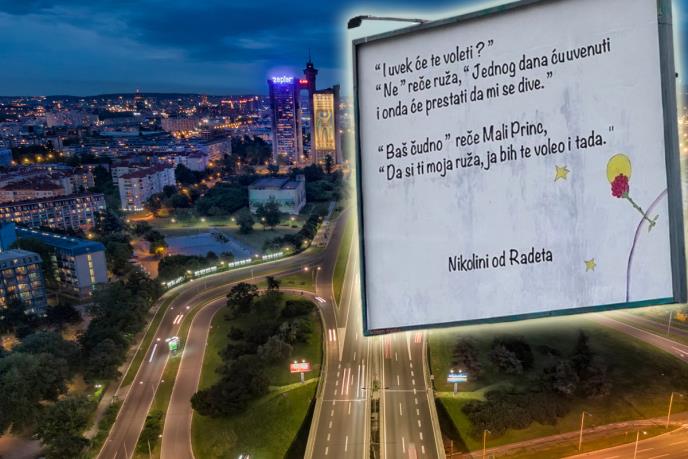 zepter
“I uvek će te voleti?”
“Ne” reče ruža, “Jednog dana ću uvenuti
i onda će prestati da mi se dive.”
“Baš čudno” reče Mali Princ,
“Da si ti moja ruža, ja bih te voleo i tada.”
Nikolini od Radeta